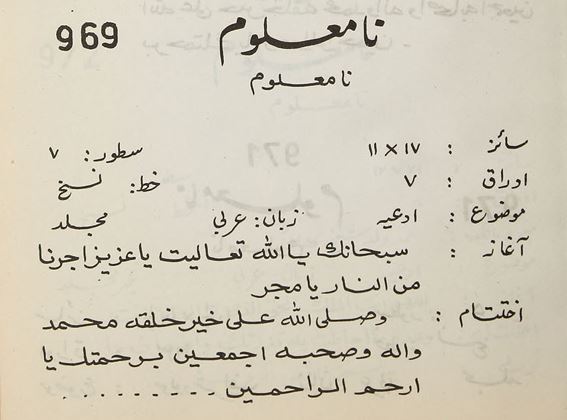 969
نامعلوم
نامعلوم
سائز : ۱۷ × ۱۱ سطور: ۷
اوراق : ۷ خط: نسخ
موضوع : ادعیه زبان: عربی مجلد
آغاز : سبحانك یا الله تعالیت یا عزیز اجرنا
من النار یا مجر
اختتام : وصلی الله علی خیر خلقه محمد
واله وصحبه اجمعین برحمتك یا
ارحم الراحمین . . . . . . . . .